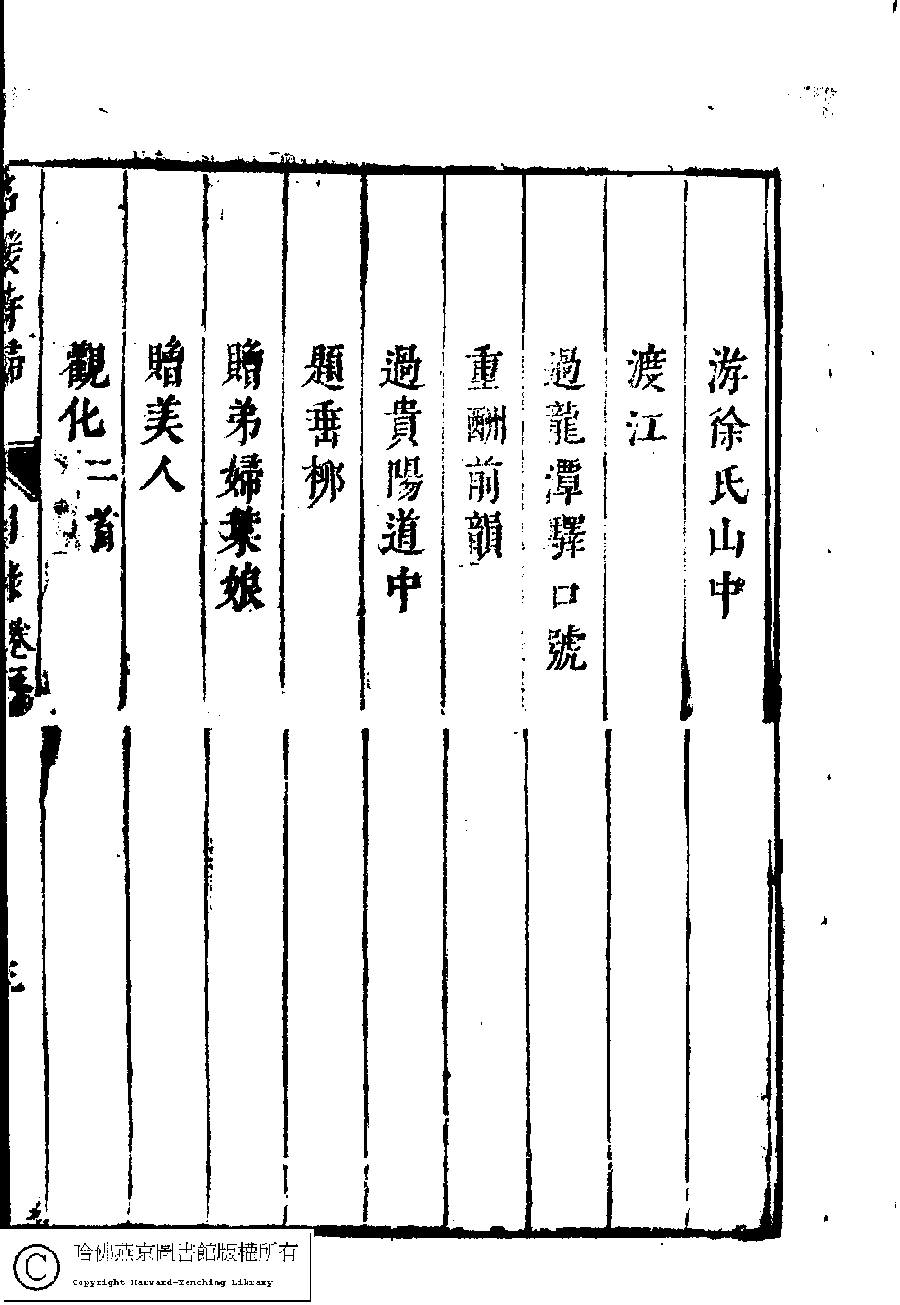 游徐氏山中
渡江
過龍潭驛口號
重酬前韻
過貴陽道中
題垂柳
贈弟婦葉娘
贈美人
觀化二首
名媛詩歸
目錄卷
哈佛燕京圖書館版權所有
Copyright Harvard-Yenching Library